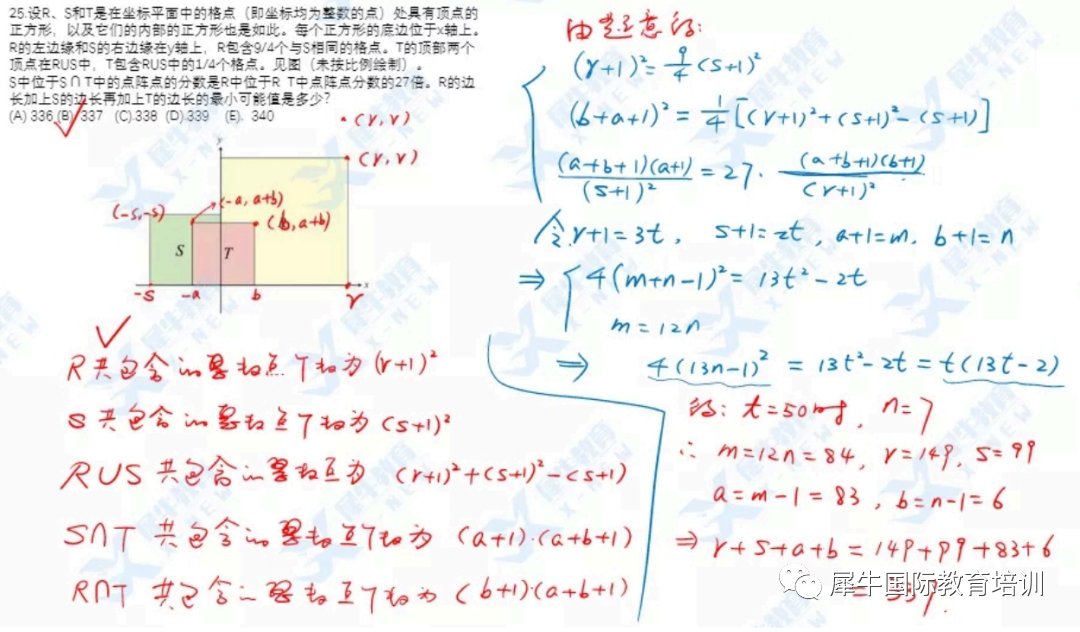 25.设R、S和T是在坐标平面中的格点（即坐标均为整数的点）处具有顶点的
正方形，以及它们的内部的正方形也是如此。每个正方形的底边位于x轴上。
R的左边缘和S的右边缘在y轴上，R包含9/4个与S相同的格点。T的顶部两个
顶点在RUS中，T包含RUS中的1/4个格点。见图（未按比例绘制）。
S中位于S∩T中的点阵点的分数是R中位于R T中点阵点分数的27倍。R的边
长加上S的边长再加上T的边长的最小可能值是多少?
(A) 336 (B) 337 (C).338 (D).339 (E). 340
(r, r)
y
(r, r)
(-a, a+b)
(-s,-s)
(b, a+b)
S
T
-s
-a
b
r
x
R共包含的整数点个数为 (r+1)²
S共包含的整数点个数为 (s+1)²
RUS 共包含的整数点为 (r+1)²+(s+1)²-(s+1)
S∩T 共包含的整数点个数为 (a+1)·(a+b+1)
R∩T 共包含的整数点个数为 (b+1)·(a+b+1)
由题意得:
(r+1)² = 9/4 (s+1)²
(b+a+1)² = 1/4 [(r+1)²+(s+1)²-(s+1)]
(a+b+1)(a+1)/(s+1)² = 27· (a+b+1)(b+1)/(r+1)²
令 r+1=3t, s+1=2t, a+1=m, b+1=n
⇒ 4(m+n-1)² = 13t²-2t
m=12n
⇒ 4(13n-1)² = 13t²-2t = t(13t-2)
得: t=50 时, n=7
∴ m=12n=84, r=149, s=99
a=m-1=83, b=n-1=6
⇒ r+s+a+b=149+99+83+6
=337.
犀牛国际教育培训
犀牛教育
X-NEW